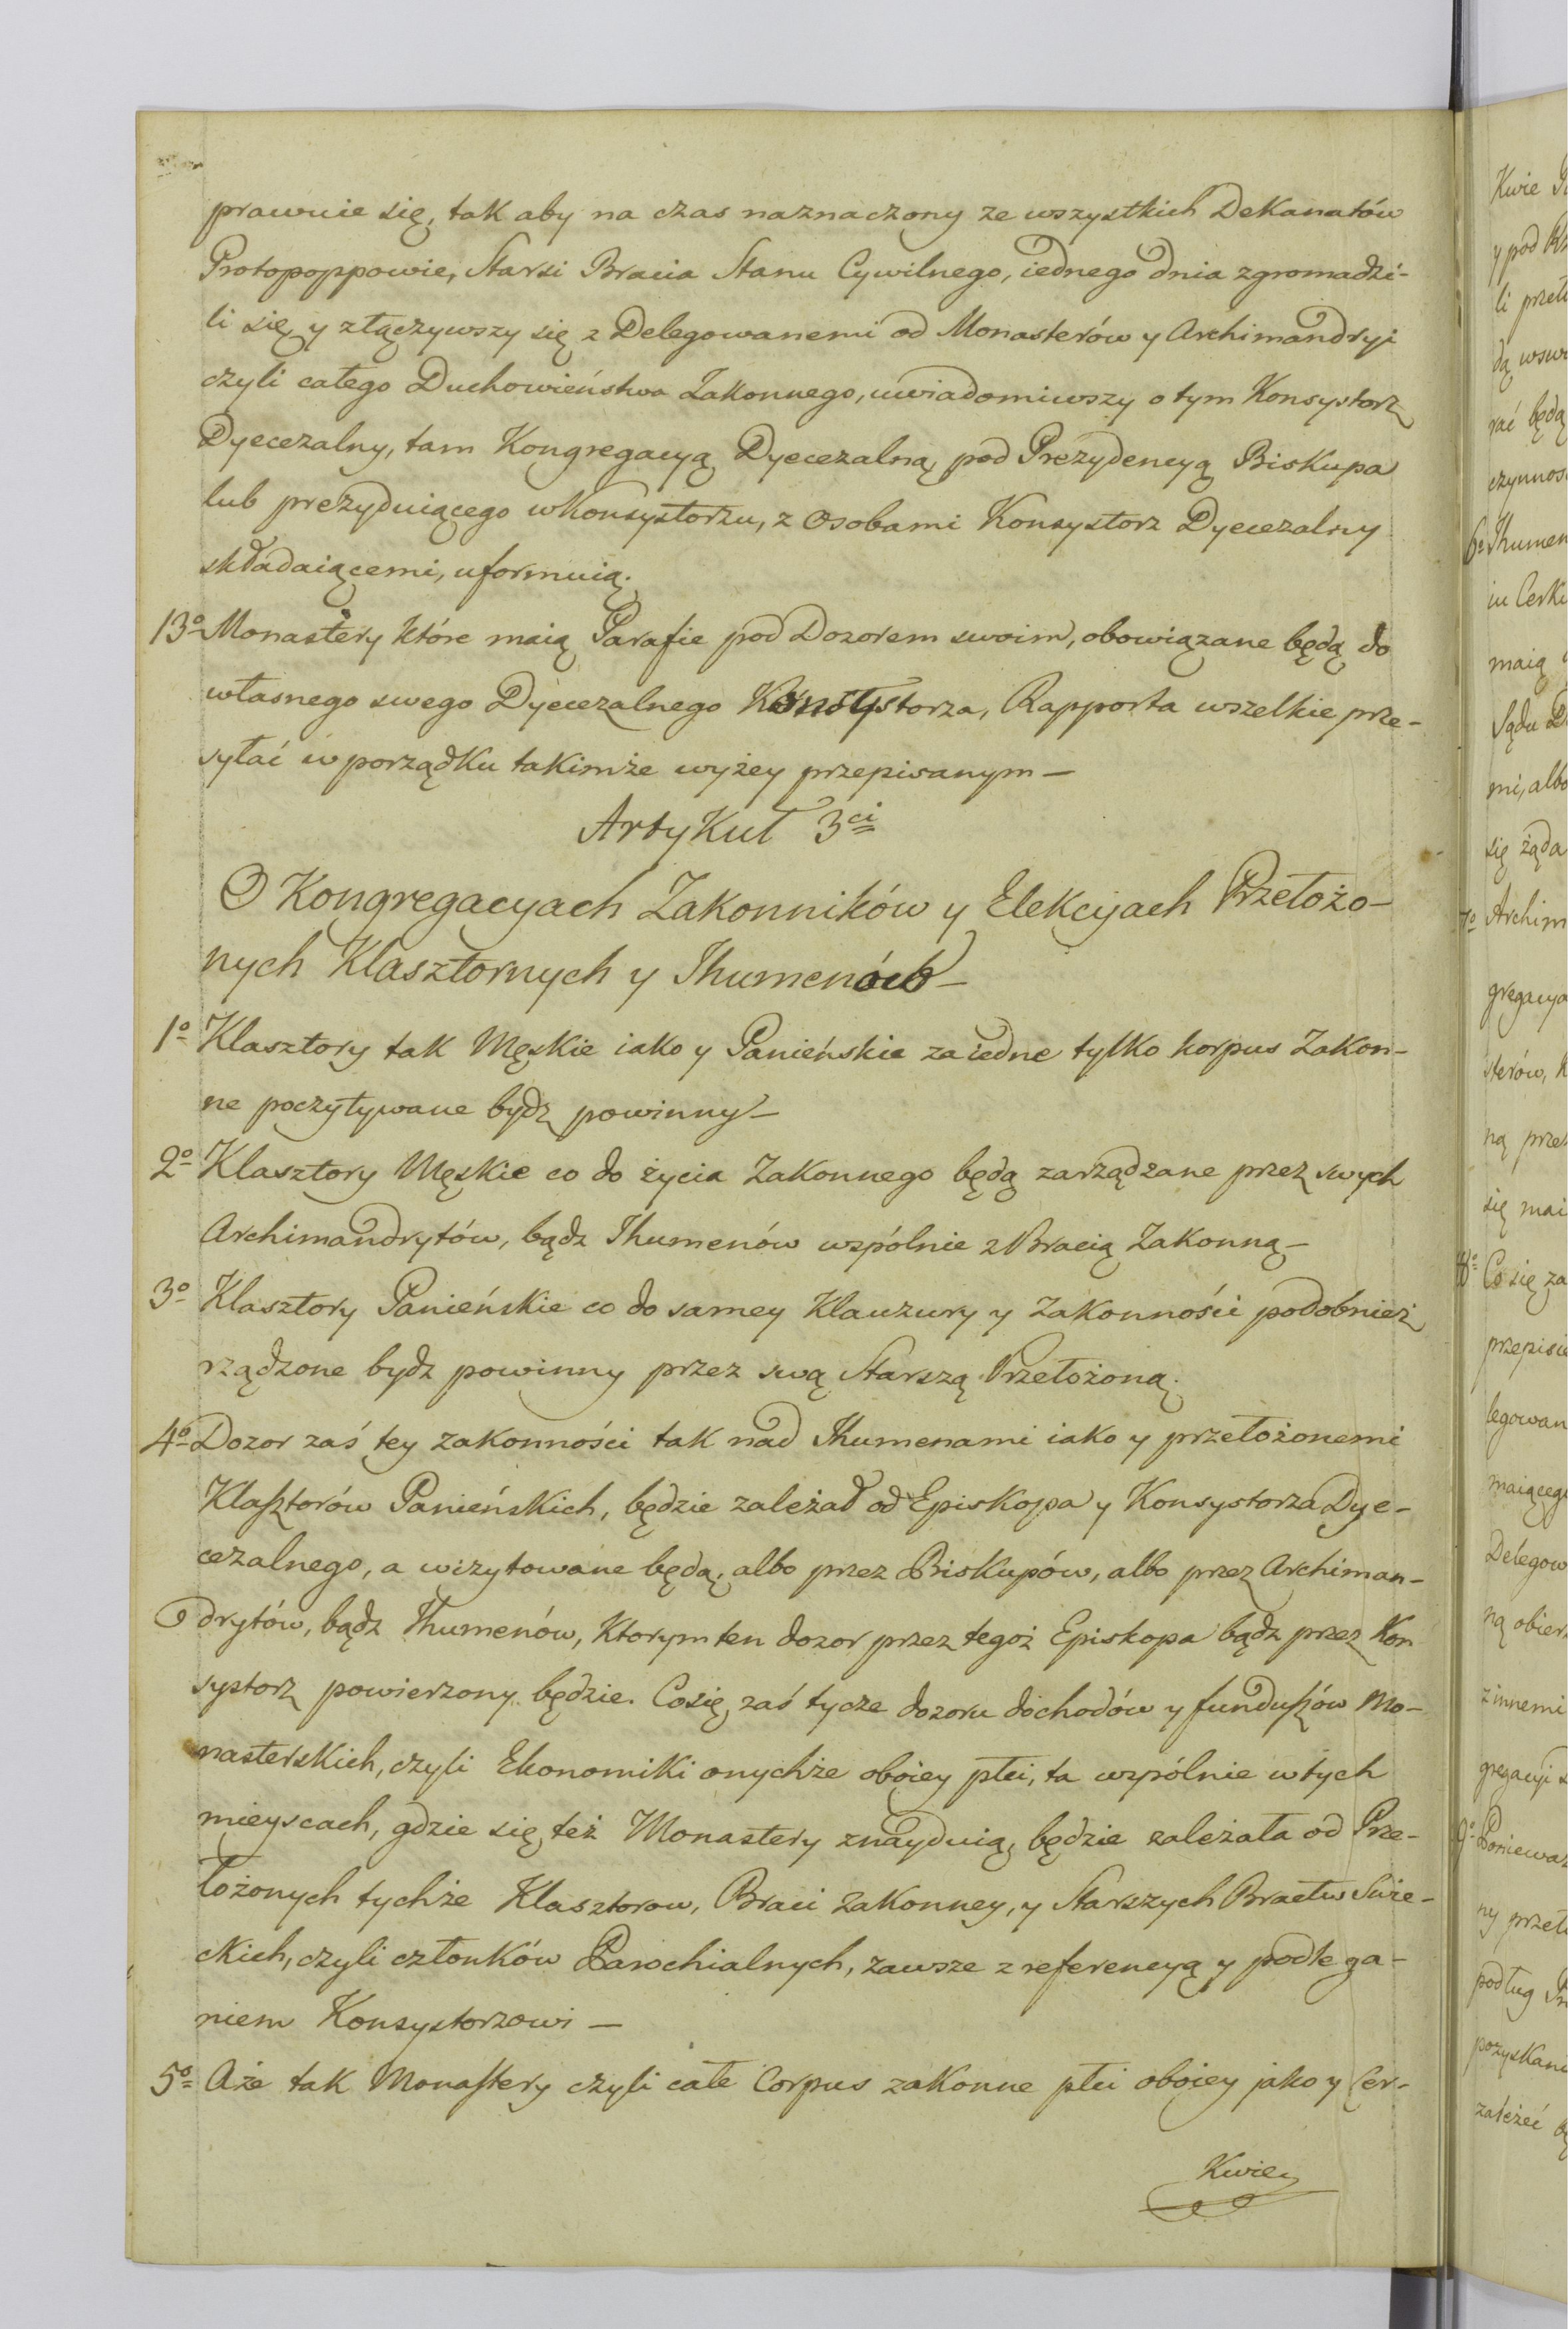 prawuie się, tak aby na czas naznaczony ze wszystkich Dekanatów
Protopoppowie, Starsi Bracia Stanu Cywilnego, iednego dnia zgromadzi-
li się y złączywszy się z Delegowanemi od Monasterów y Archimandryi
czyli całego Duchowieństwa Zakonnego, uwiadomiwszy o tym Konsystorz
Dyecezalny, tam Kongregacyą Dyecezalną pod Prezydencyą Biskupa
lub prezyduiącego w Konsystorzu, z Osobami Konsystorz Dyecezalny
składaiącemi, uformuią.
13o Monastery które maią Parafie pod Dozorem swoim, obowiązane będą do
własnego swego Dyecezalnego Konsystorza, Rapporta wszelkie prze-
syłać w porządku takimże wyżey przepisanym —
Artykuł 3ci
O Kongregacyach Zakonników y Elekcyach Przełożo-
nych Klasztornych y Ihumenów —
1o Klasztory tak Męskie iako y Panieńskie za iedne tylko korpus Zakon-
ne poczytywane bydz powinny —
2o Klasztory Męskie co do życia Zakonnego będą zarządzane przez swych
Archimandrytów, bądz Ihumenów wspólnie z Bracią Zakonną —
3o Klasztory Panieńskie co do samey Klauzury y Zakonności podobnież
rządzone bydz powinny przez swą Starszą Przełożoną.
4o Dozor zaś tey zakonności tak nad Ihumenami iako y przełożonemi
Klasztorów Panieńskich, będzie zależał od Episkopa y Konsystorza Dye-
cezalnego, a wizytowane będą, albo przez Biskupów, albo przez Archiman-
drytów, bądz Ihumenów, Ktorym ten dozor przez tegoż Episkopa bądz przez Kon
systorz powierzony będzie. Co się zaś tycze dozoru dochodów y funduszów Mo-
nasterskich, czyli Ekonomiki onychże oboiey płci, ta wspólnie w tych
mieyscach, gdzie się też Monastery znayduią, będzie zależała od Prze-
łożonych tychże Klasztorow, Braci Zakonney, y Starszych Bractw Swie-
ckich, czyli członków Parochialnych, zawsze z referencyą y podlega-
niem Konsystorzowi —
5o A że tak Monastery czyli całe Corpus zakonne płci oboiey jako y Cer-
Kwie
Kwie
y pod
li przeł
dą
rać będą
czynnoś
6o Ihumen
iu Cerki
maią
Sądu
mi, albo
się żąda
7o Archim
gregacya
sterów,
ną przez
się mai
8o Co się za
przepisie
legowan
maiącego
Delegow
ną obierz
z innemi
gregacyi
9o Poniewaz
ny przeł
podług
pozyskani
zależeć